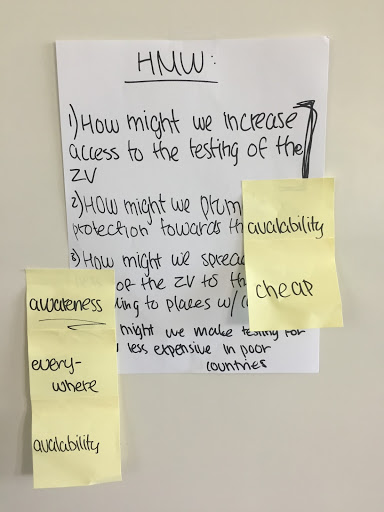 HMW:
1) How might we increase
access to the testing of the
ZV
2) How might we
protection towards
3) How might we
of the ZV to
to places w/
might we make testing for
less expensive in poor
countries
avalability
cheap
awareness
every-
where
avalability